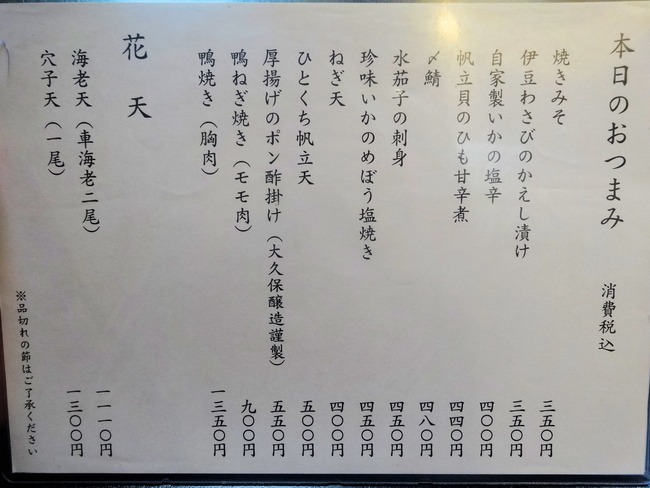 本日のおつまみ 消費税込
焼きみそ 三五〇円
伊豆わさびのかえし漬け 三五〇円
自家製いかの塩辛 四〇〇円
帆立貝のひも甘辛煮 四四〇円
〆鯖 四八〇円
水茄子の刺身 四五〇円
珍味いかのめぼう塩焼き 四五〇円
ねぎ天 四〇〇円
ひとくち帆立天 五〇〇円
厚揚げのポン酢掛け（大久保醸造謹製） 五五〇円
鴨ねぎ焼き（モモ肉） 九〇〇円
鴨焼き（胸肉） 一三五〇円
花天
海老天（車海老二尾） 一一一〇円
穴子天（一尾） 一三〇〇円
※品切れの節はご了承ください